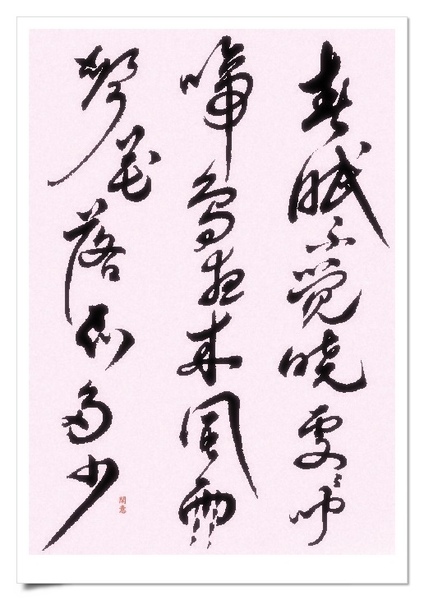 春眠不觉晓處々闻
啼鸟夜来风雨
聲花落知多少